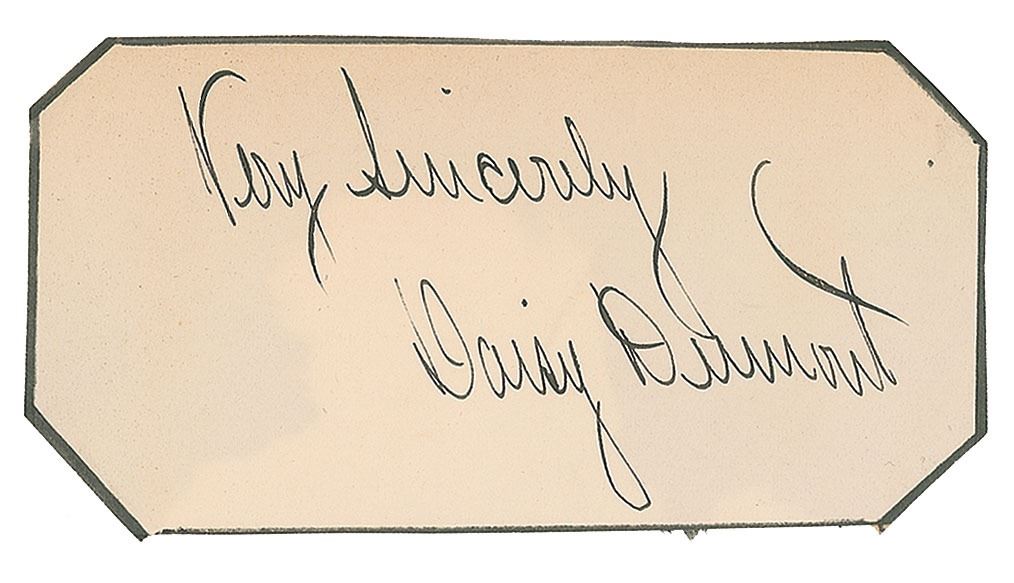 Very Sincerely
Daisy Dumont